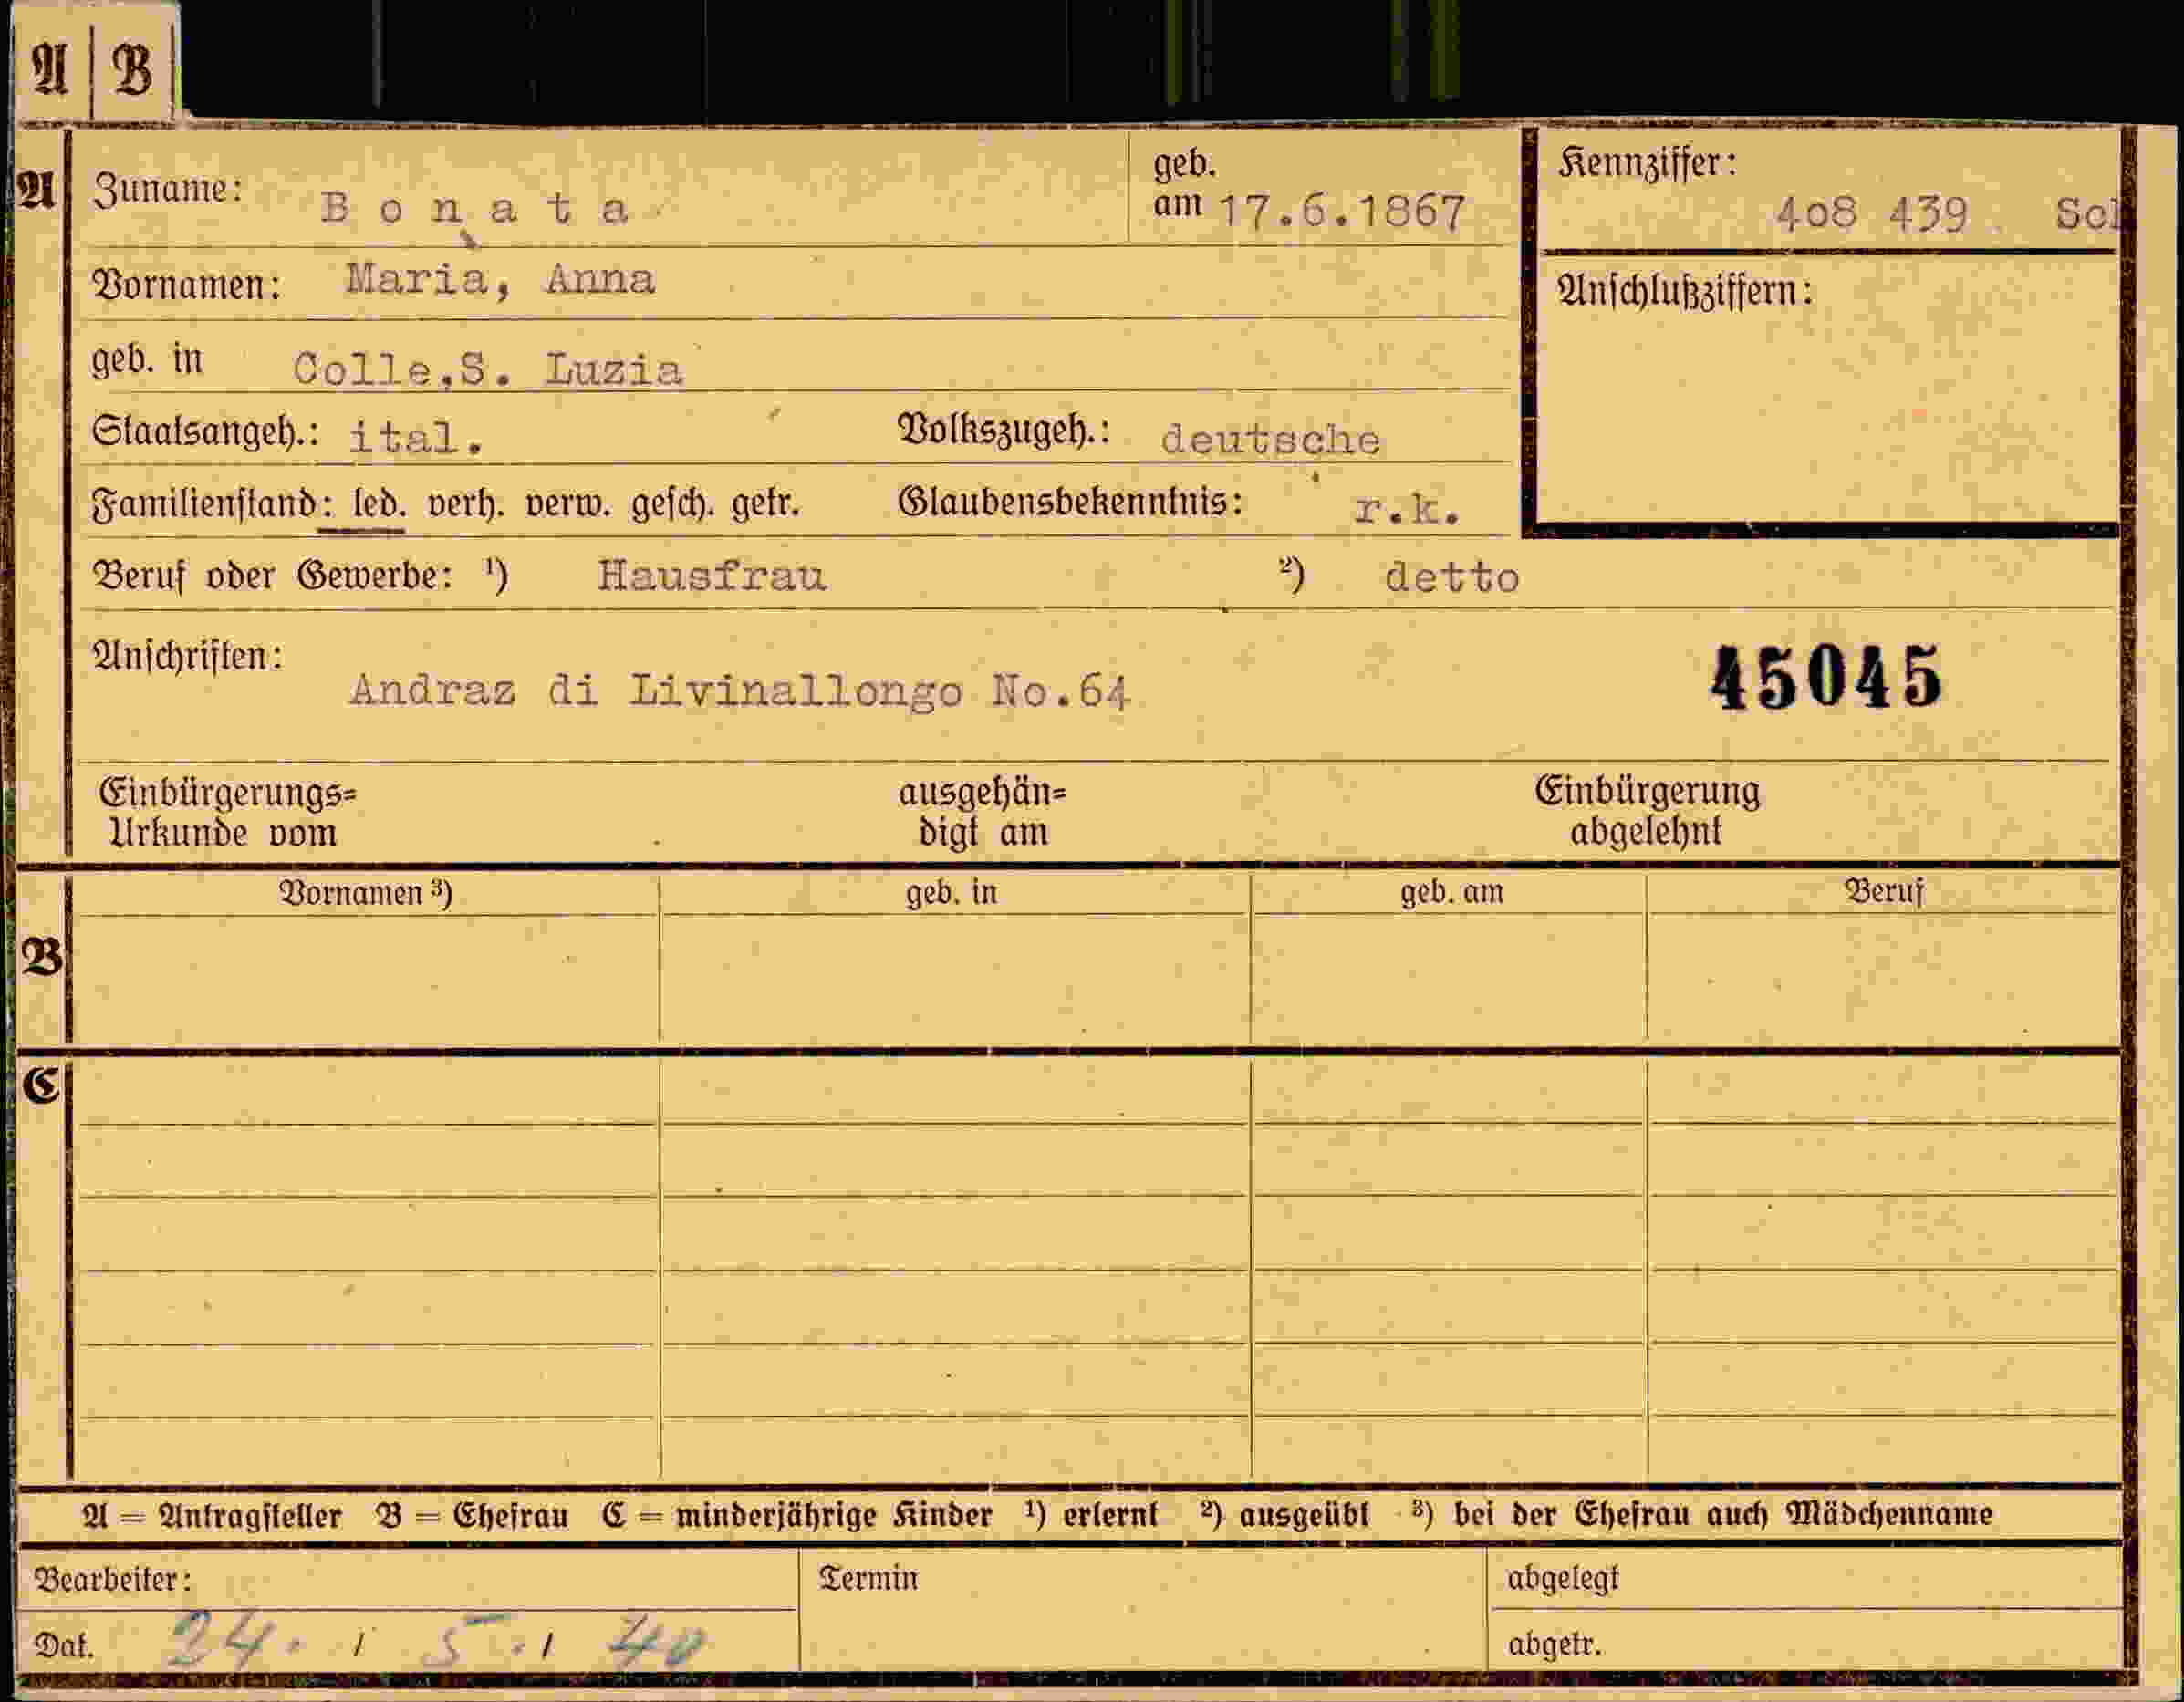 A B
A Zuname: Bonata geb. am 17.6.1867 Kennziffer: 4o8 439
Vornamen: Maria, Anna Anschlußziffern:
geb. in Colle,S. Luzia
Staatsangeh.: ital. Volkszugeh.: deutsche
Familienstand: led. verh. verw. gesch. getr. Glaubensbekenntnis: r.k.
Beruf oder Gewerbe: ¹) Hausfrau ²) detto
Anschriften:
Andraz di Livinallongo No.64 45045
Einbürgerungs= ausgehän= Einbürgerung
Urkunde vom digt am abgelehnt
Vornamen ³) geb. in geb. am Beruf
B
C
A = Antragsteller B = Ehefrau C = minderjährige Kinder ¹) erlernt ²) ausgeübt ³) bei der Ehefrau auch Mädchenname
Bearbeiter: Termin abgelegt
Dat. 24. / 5. / 40 abgetr.